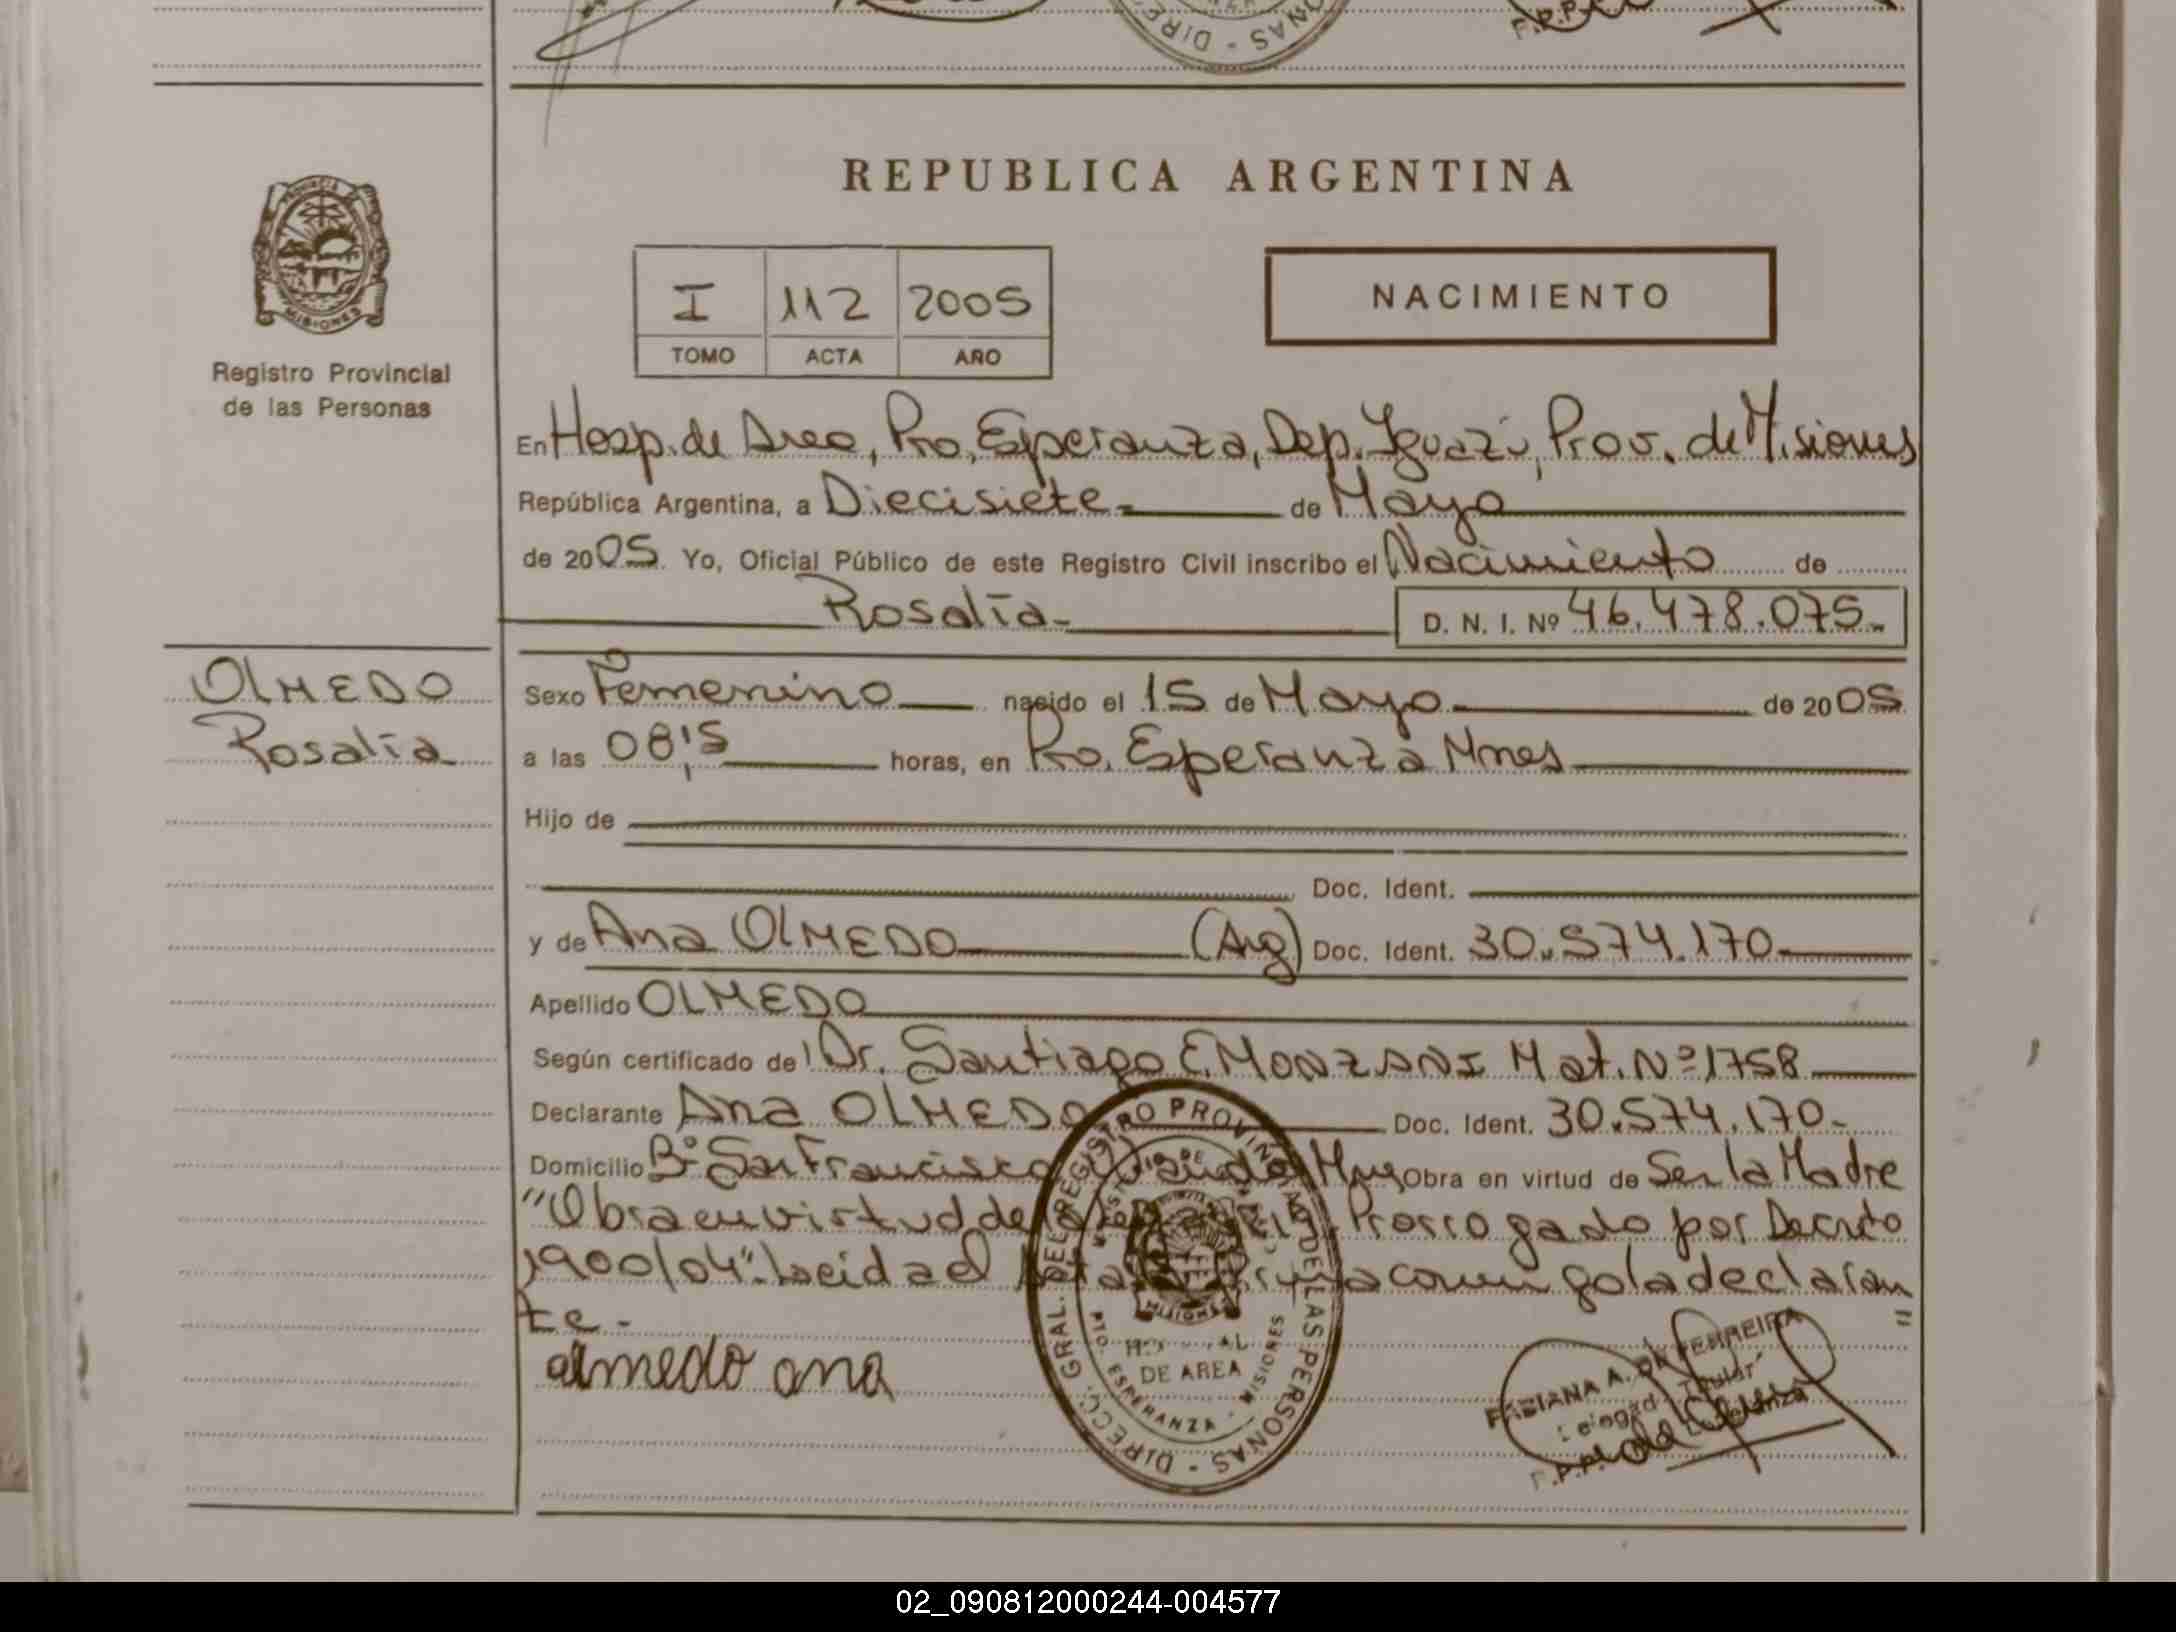 REPUBLICA ARGENTINA
PROVINCIA DE
MISIONES
Registro Provincial
de las Personas
I 112 2005
TOMO ACTA AÑO
NACIMIENTO
En Hosp. de Area, Pto. Esperanza, Dep. Iguazú, Prov. de Misiones
República Argentina, a Diecisiete.- de Mayo
de 2005. Yo, Oficial Público de este Registro Civil inscribo el Nacimiento de
Rosalía.- D. N. I. Nº 46.478.075.-
OLMEDO
Rosalía.
Sexo Femenino nacido el 15 de Mayo.- de 2005
a las 08,'5 horas, en Pto. Esperanza Mnes
Hijo de
Doc. Ident.
y de Ana OLMEDO (Arg) Doc. Ident. 30.574.170.-
Apellido OLMEDO
Según certificado de Dr. Santiago E. MONZANI Mat. Nº 1758
Declarante Ana OLMEDO Doc. Ident. 30.574.170.-
Domicilio Bº San Francisco Obra en virtud de Ser la Madre
"Obra en virtud de Prorrogado por Decreto
1900/04". Leida el conmigo la declaran
te.-
olmedo ana
DIRECC. GRAL. DEL REGISTRO PROVINCIAL DE LAS PERSONAS
MISIONES
DE AREA
PTO. ESPERANZA - MISIONES
FABIANA A. DE FERREIRA
Titular
02_090812000244-004577